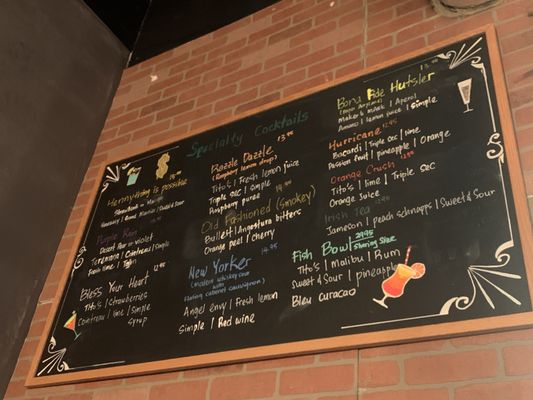 Specialty Cocktails
Hennything is possible
Purple Rain
Desert Pear or Violet
Fresh lime /
Bless Your Heart 12.95
Tito's / Strawberries
Cointreau / lime / Simple
Syrup
Razzle Dazzle 13.95
(Raspberry lemon drop)
Tito's / Fresh lemon juice
Triple sec / simple
Raspberry puree
Old Fashioned (smokey)
Bulleit / Angostura bitters
Orange peel / cherry
New Yorker 14.95
(modern whiskey sour with
floating cabernet sauvignon)
Angel envy / Fresh lemon
Simple / Red wine
Bona Fide Hustler 13.95
Maker's mark / Aperol
Amaro / lemon juice / Simple
Hurricane 12.95
Bacardi / Triple sec / lime
Passion fruit / pineapple / Orange
Orange Crush 12.95
Tito's / lime / Triple sec
Orange Juice
Irish Tea
Jameson / peach schnapps / Sweet & Sour
Fish Bowl 29.95 sharing size
Tito's / Malibu / Rum
Sweet & Sour / pineapple
Bleu curacao